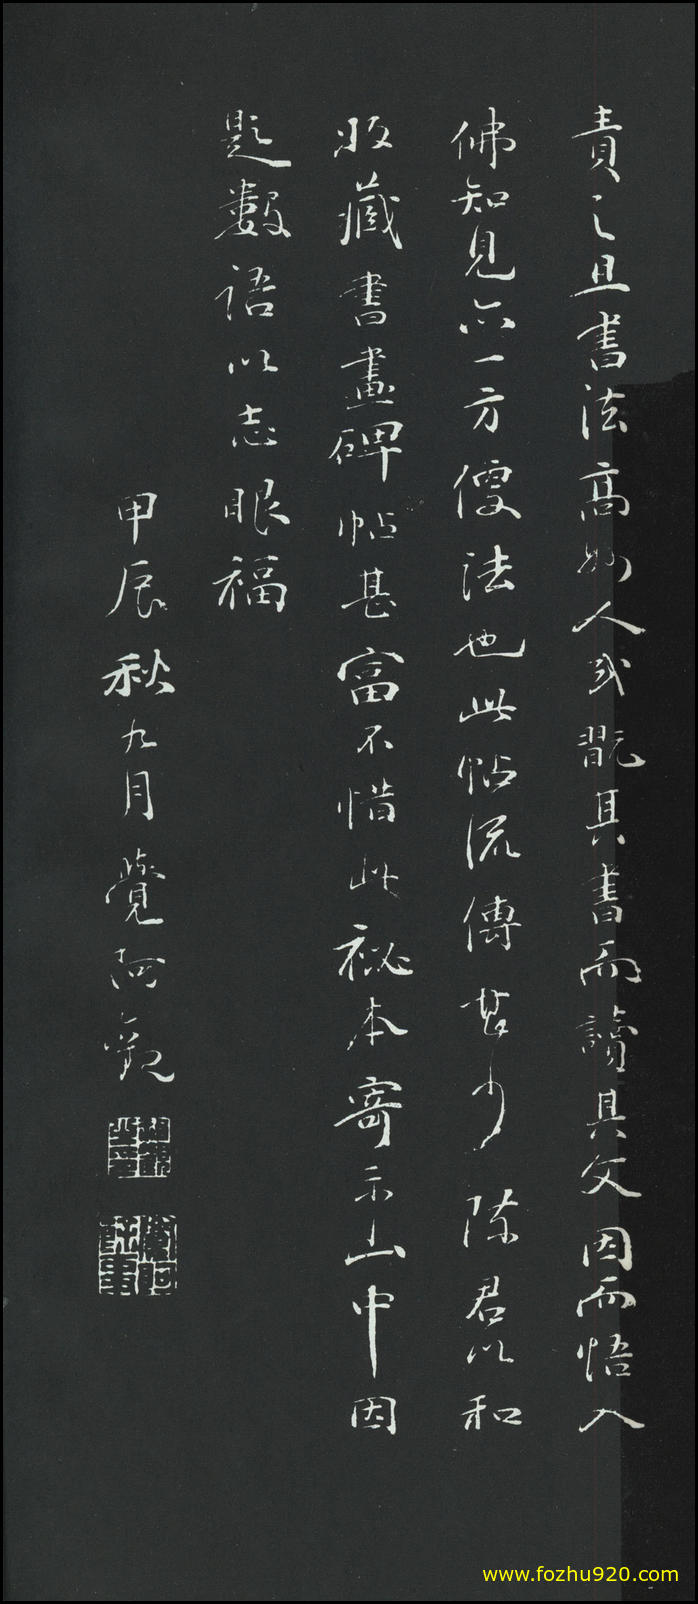 責之且書法高妙人或翫其書而讀其文因而悟入
佛知見亦一方便法也此帖流傳甚少陳君以和
收藏書畫碑帖甚富不惜此祕本寄示山中因
題數語以志眼福
甲辰秋九月覺阿觀
www.fozhu920.com